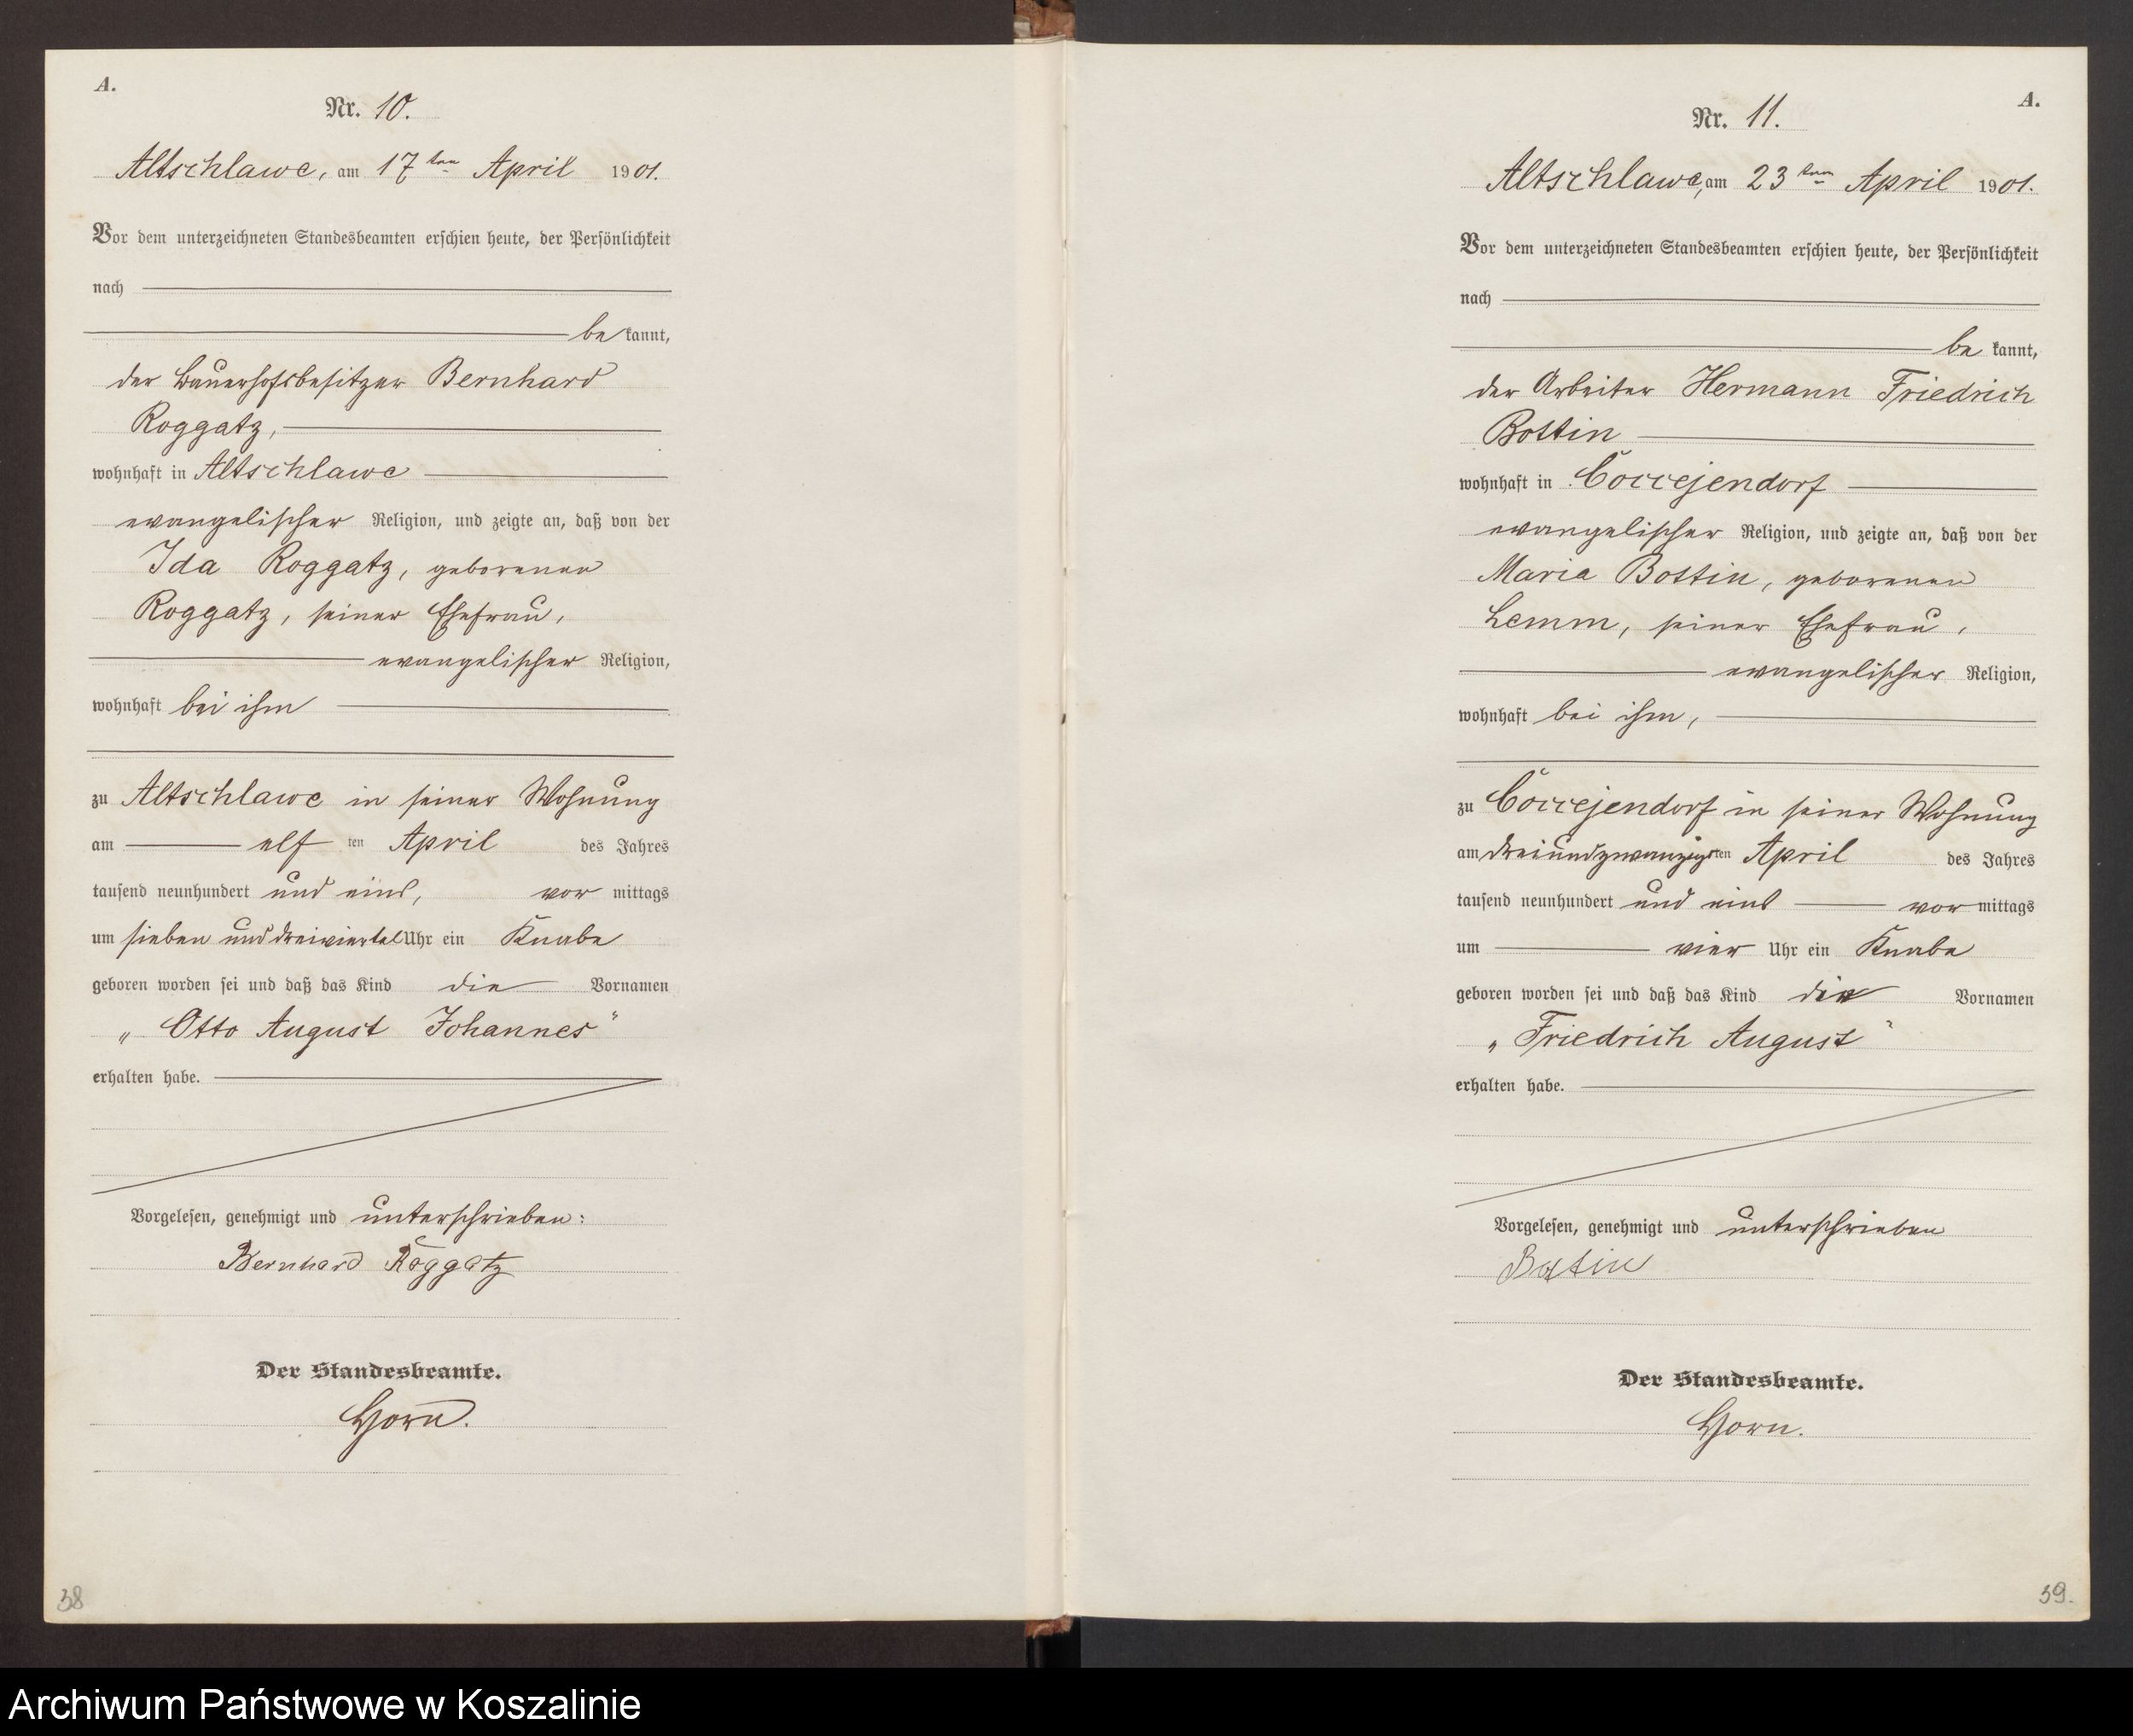 A.
Nr. 10.
Altschlawe, am 17ten April 1901.
Vor dem unterzeichneten Standesbeamten erschien heute, der Persönlichkeit
nach
be kannt,
der Bauerhofsbesitzer Bernhard
Roggatz,
wohnhaft in Altschlawe
evangelischer Religion, und zeigte an, daß von der
Ida Roggatz, geborenen
Roggatz, seiner Ehefrau,
evangelischer Religion,
wohnhaft bei ihm
zu Altschlawe in seiner Wohnung
am elf ten April des Jahres
tausend neunhundert und eins, vor mittags
um sieben und dreiviertel Uhr ein Knabe
geboren worden sei und daß das Kind die Vornamen
„Otto August Johannes“
erhalten habe.
Vorgelesen, genehmigt und unterschrieben:
Bernhard Roggatz
Der Standesbeamte.
Horn.
38
A.
Nr. 11.
Altschlawe, am 23ten April 1901.
Vor dem unterzeichneten Standesbeamten erschien heute, der Persönlichkeit
nach
be kannt,
der Arbeiter Hermann Friedrich
Bottin
wohnhaft in Coccejendorf
evangelischer Religion, und zeigte an, daß von der
Maria Bottin, geborenen
Lemm, seiner Ehefrau,
evangelischer Religion,
wohnhaft bei ihm,
zu Coccejendorf in seiner Wohnung
am dreiundzwanzigsten April des Jahres
tausend neunhundert und eins vor mittags
um vier Uhr ein Knabe
geboren worden sei und daß das Kind die Vornamen
„Friedrich August“
erhalten habe.
Vorgelesen, genehmigt und unterschrieben
Der Standesbeamte.
Horn.
39.
Archiwum Państwowe w Koszalinie